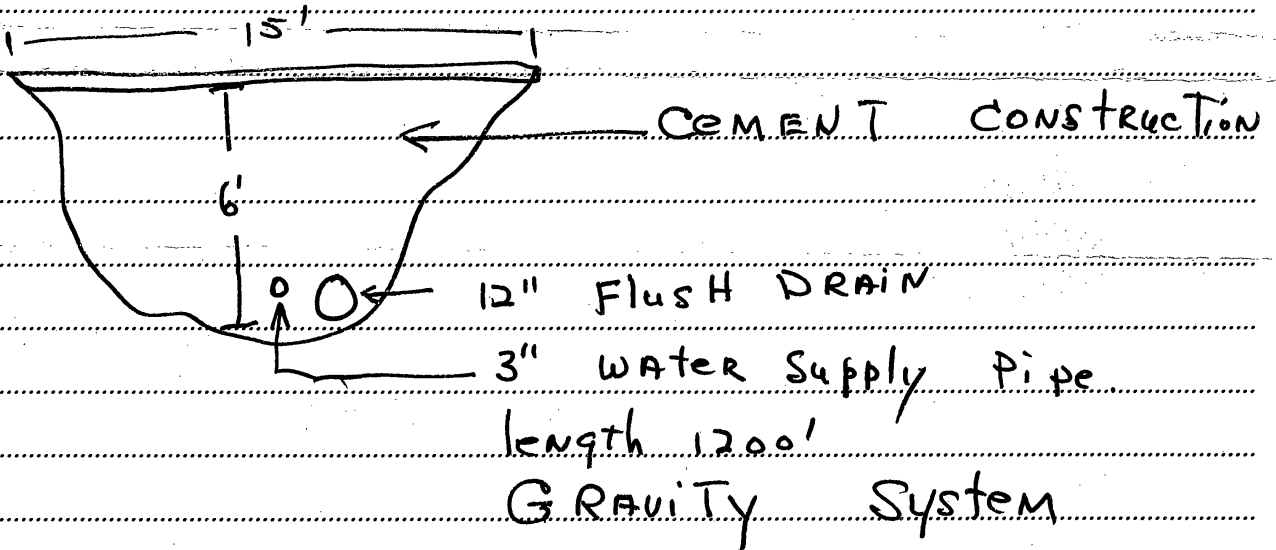 15'
CEMENT CONSTRUCTION
6'
12" FlusH DRAiN
3" WAteR Supply Pipe.
leNgth 1200'
GRAViTY SysteM